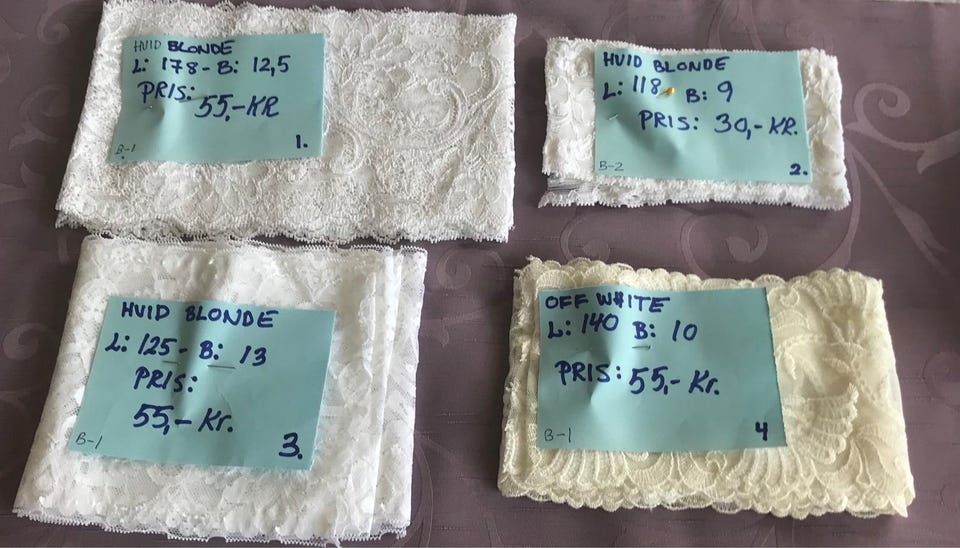 HVID BLONDE
L: 178 - B: 12,5
PRIS:
55,- KR
B-1
1.
HVID BLONDE
L: 118 B: 9
PRIS: 30,- KR.
B-2
2.
HVID BLONDE
L: 125 - B: 13
PRIS:
55,- Kr.
B-1
3.
OFF WHITE
L: 140 B: 10
PRIS: 55,- Kr.
B-1
4